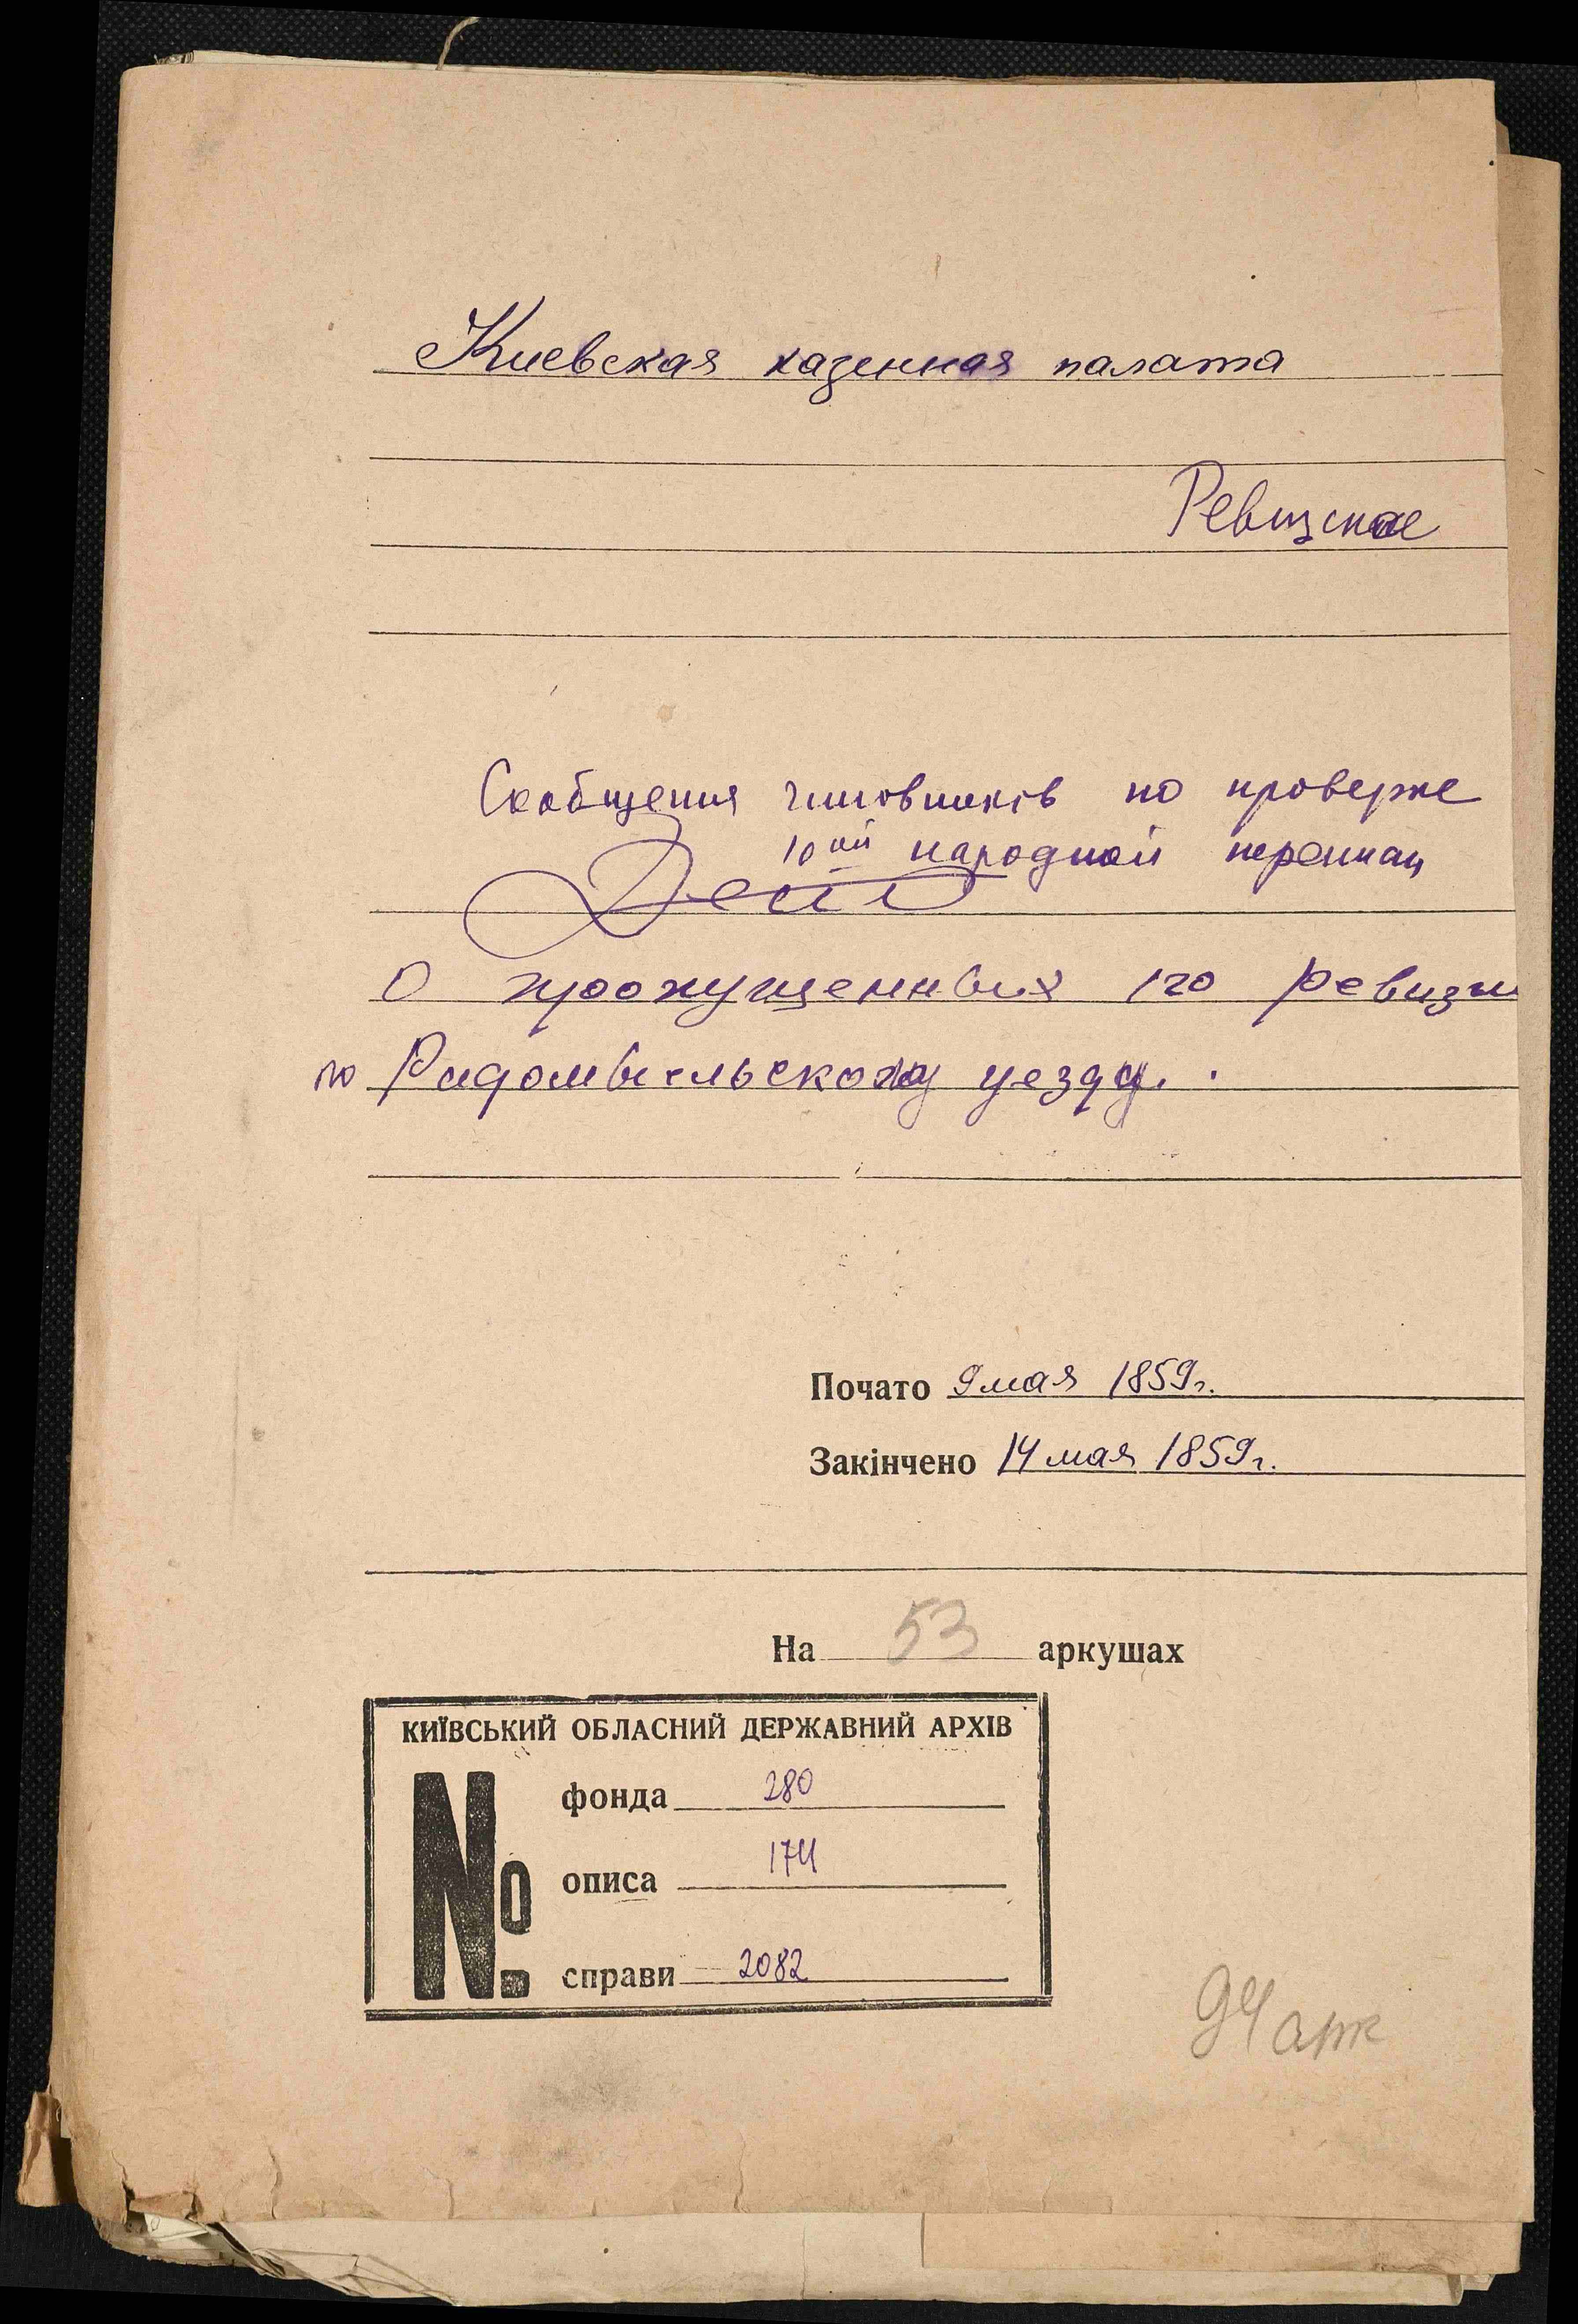 Киевская казенная палата
Ревизское
Сообщения чиновников по проверке
10ой народной переписи
Дело
О пропущенных по ревизии
по Радомысльскому уезду.
Почато 9 мая 1859г.
Закінчено 14 мая 1859г.
На 53 аркушах
КИЇВСЬКИЙ ОБЛАСНИЙ ДЕРЖАВНИЙ АРХІВ
№
фонда 280
описа 174
справи 2082
94 арк